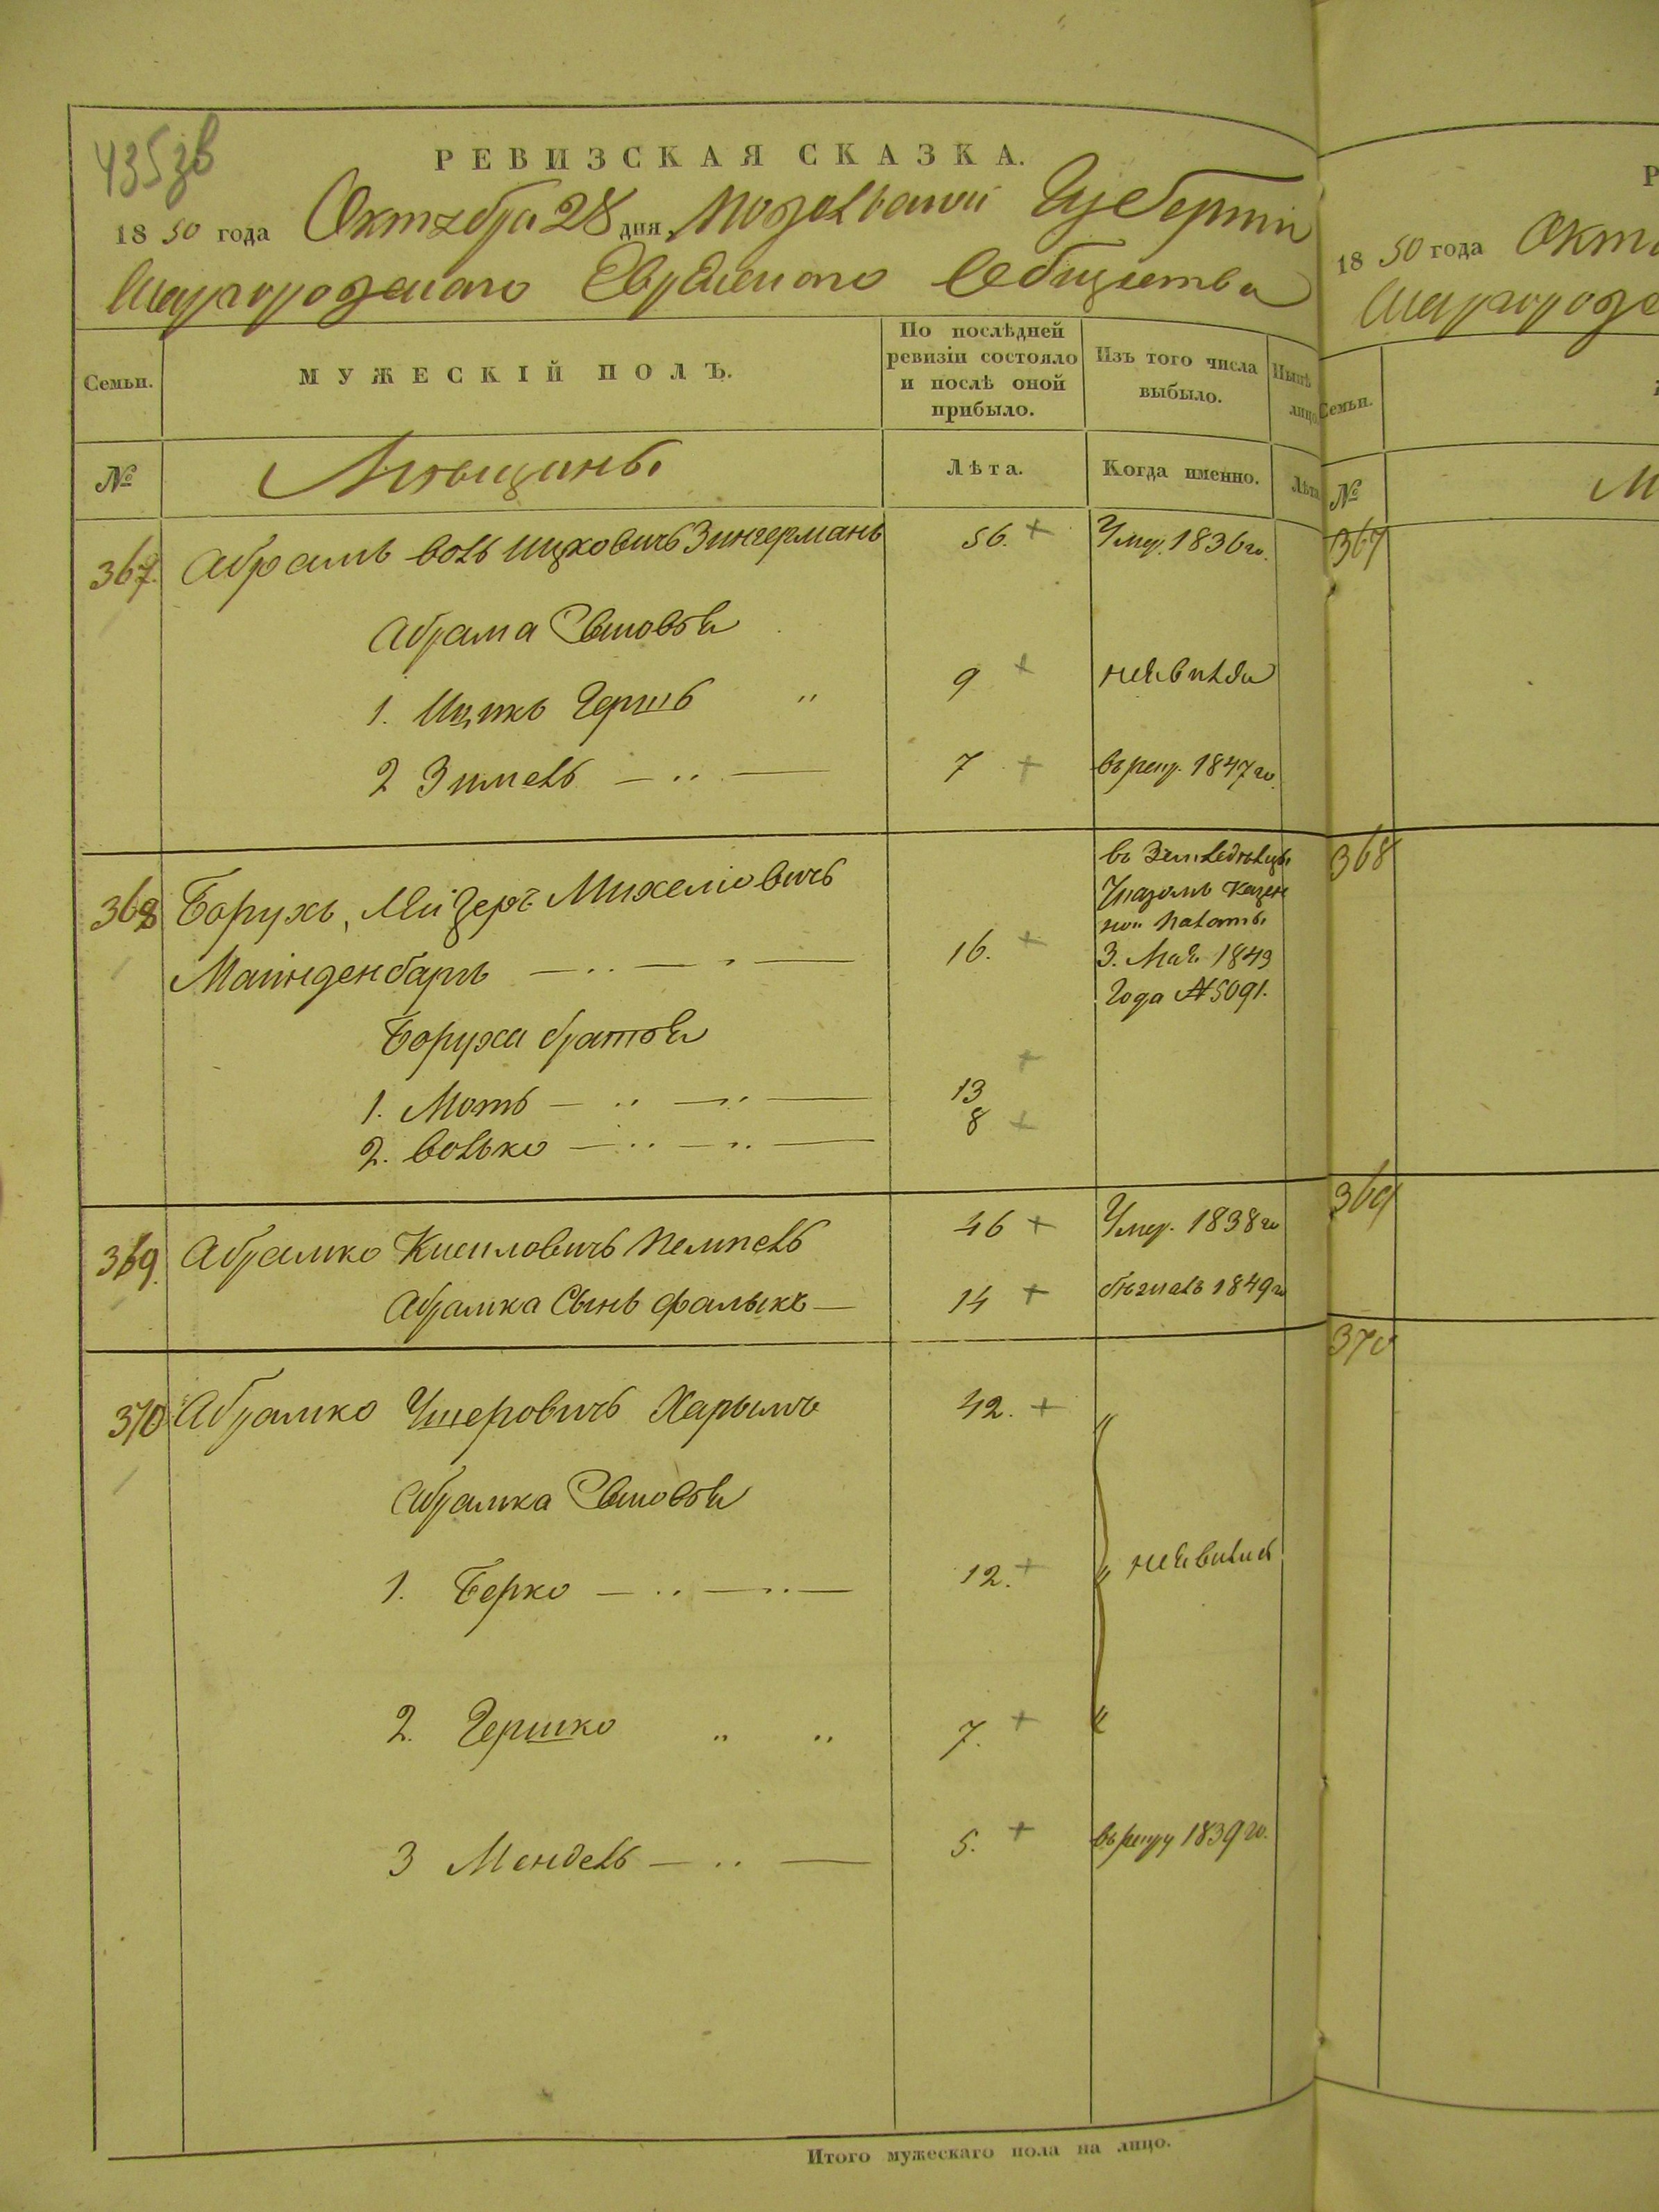 435 зв
РЕВИЗСКАЯ СКАЗКА.
1850 года Октября 28 дня, Подольской Губерніи
Шаргородскаго Еврейскаго Общества
Семьи.
МУЖЕСКІЙ ПОЛЪ.
По послѣдней ревизіи состояло и послѣ оной прибыло.
Изъ того числа выбыло.
Нынѣ лицо
№
Мѣщаны
Лѣта.
Когда именно.
Лѣта
367. Абрамъ Воль Ицковичъ Зингерманъ 56. Умер. 1836 го.
Абрама Сыновья
1. Ицикъ Гершъ " 9 неявился
2 Зимель — " — 7 въ рекр. 1847 го.
368 Борухъ, Михелиовичъ
16.
въ Земледѣльцы
Указомъ Казен
ной Палаты
3. Мая 1849
Года № 5091.
Боруха братья
1. Моть — " — " — 13
2. Волько — " — " — 8
369. Абрамко Кисиловичъ Пемпель 46 Умер. 1838 го
Абрамка Сынъ Фалыкъ — 14 бѣжалъ 1849 го
370 Абрамко Ушеровичъ Харымъ 42.
Абрамка Сыновья
1. Берко — " — " — 12. " неявились
2. Гершко " " 7. "
3 Мендель — " — 5. въ рекру 1839 го.
Итого мужескаго пола на лицо.
Р
1850 года Октя
Шаргородс
Семьи.
№
М
367
368
369
370